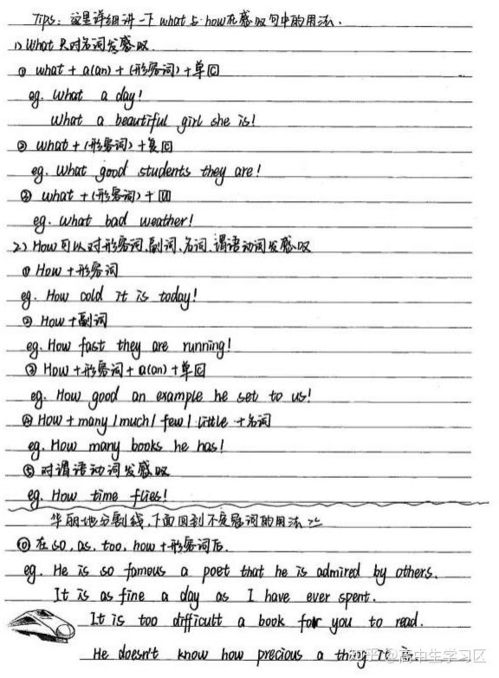 Tips: 这里详细讲一下 what 与 how在感叹句中的用法.
1) What 只对名词发感叹.
① what + a(an) + (形容词) + 单Ⓒ
eg. What a day!
What a beautiful girl she is!
② what + (形容词) + 复Ⓒ
eg. What good students they are!
③ what + (形容词) + Ⓤ
eg. What bad weather!
2) How可以对形容词、副词、名词、谓语动词发感叹
① How + 形容词
eg. How cold it is today!
② How + 副词
eg. How fast they are running!
③ How + 形容词 + a(an) + 单Ⓒ
eg. How good an example he set to us!
④ How + many / much / few / little + 名词
eg. How many books he has!
⑤ 对谓语动词发感叹
eg. How time flies!
华丽地分割线,下面回到不定冠词的用法
⑩ 在so, as, too, how + 形容词后.
eg. He is so famous a poet that he is admired by others.
It is as fine a day as I have ever spent.
It is too difficult a book for you to read.
He doesn't know how precious a thing it is.
知乎 @高中生学习区